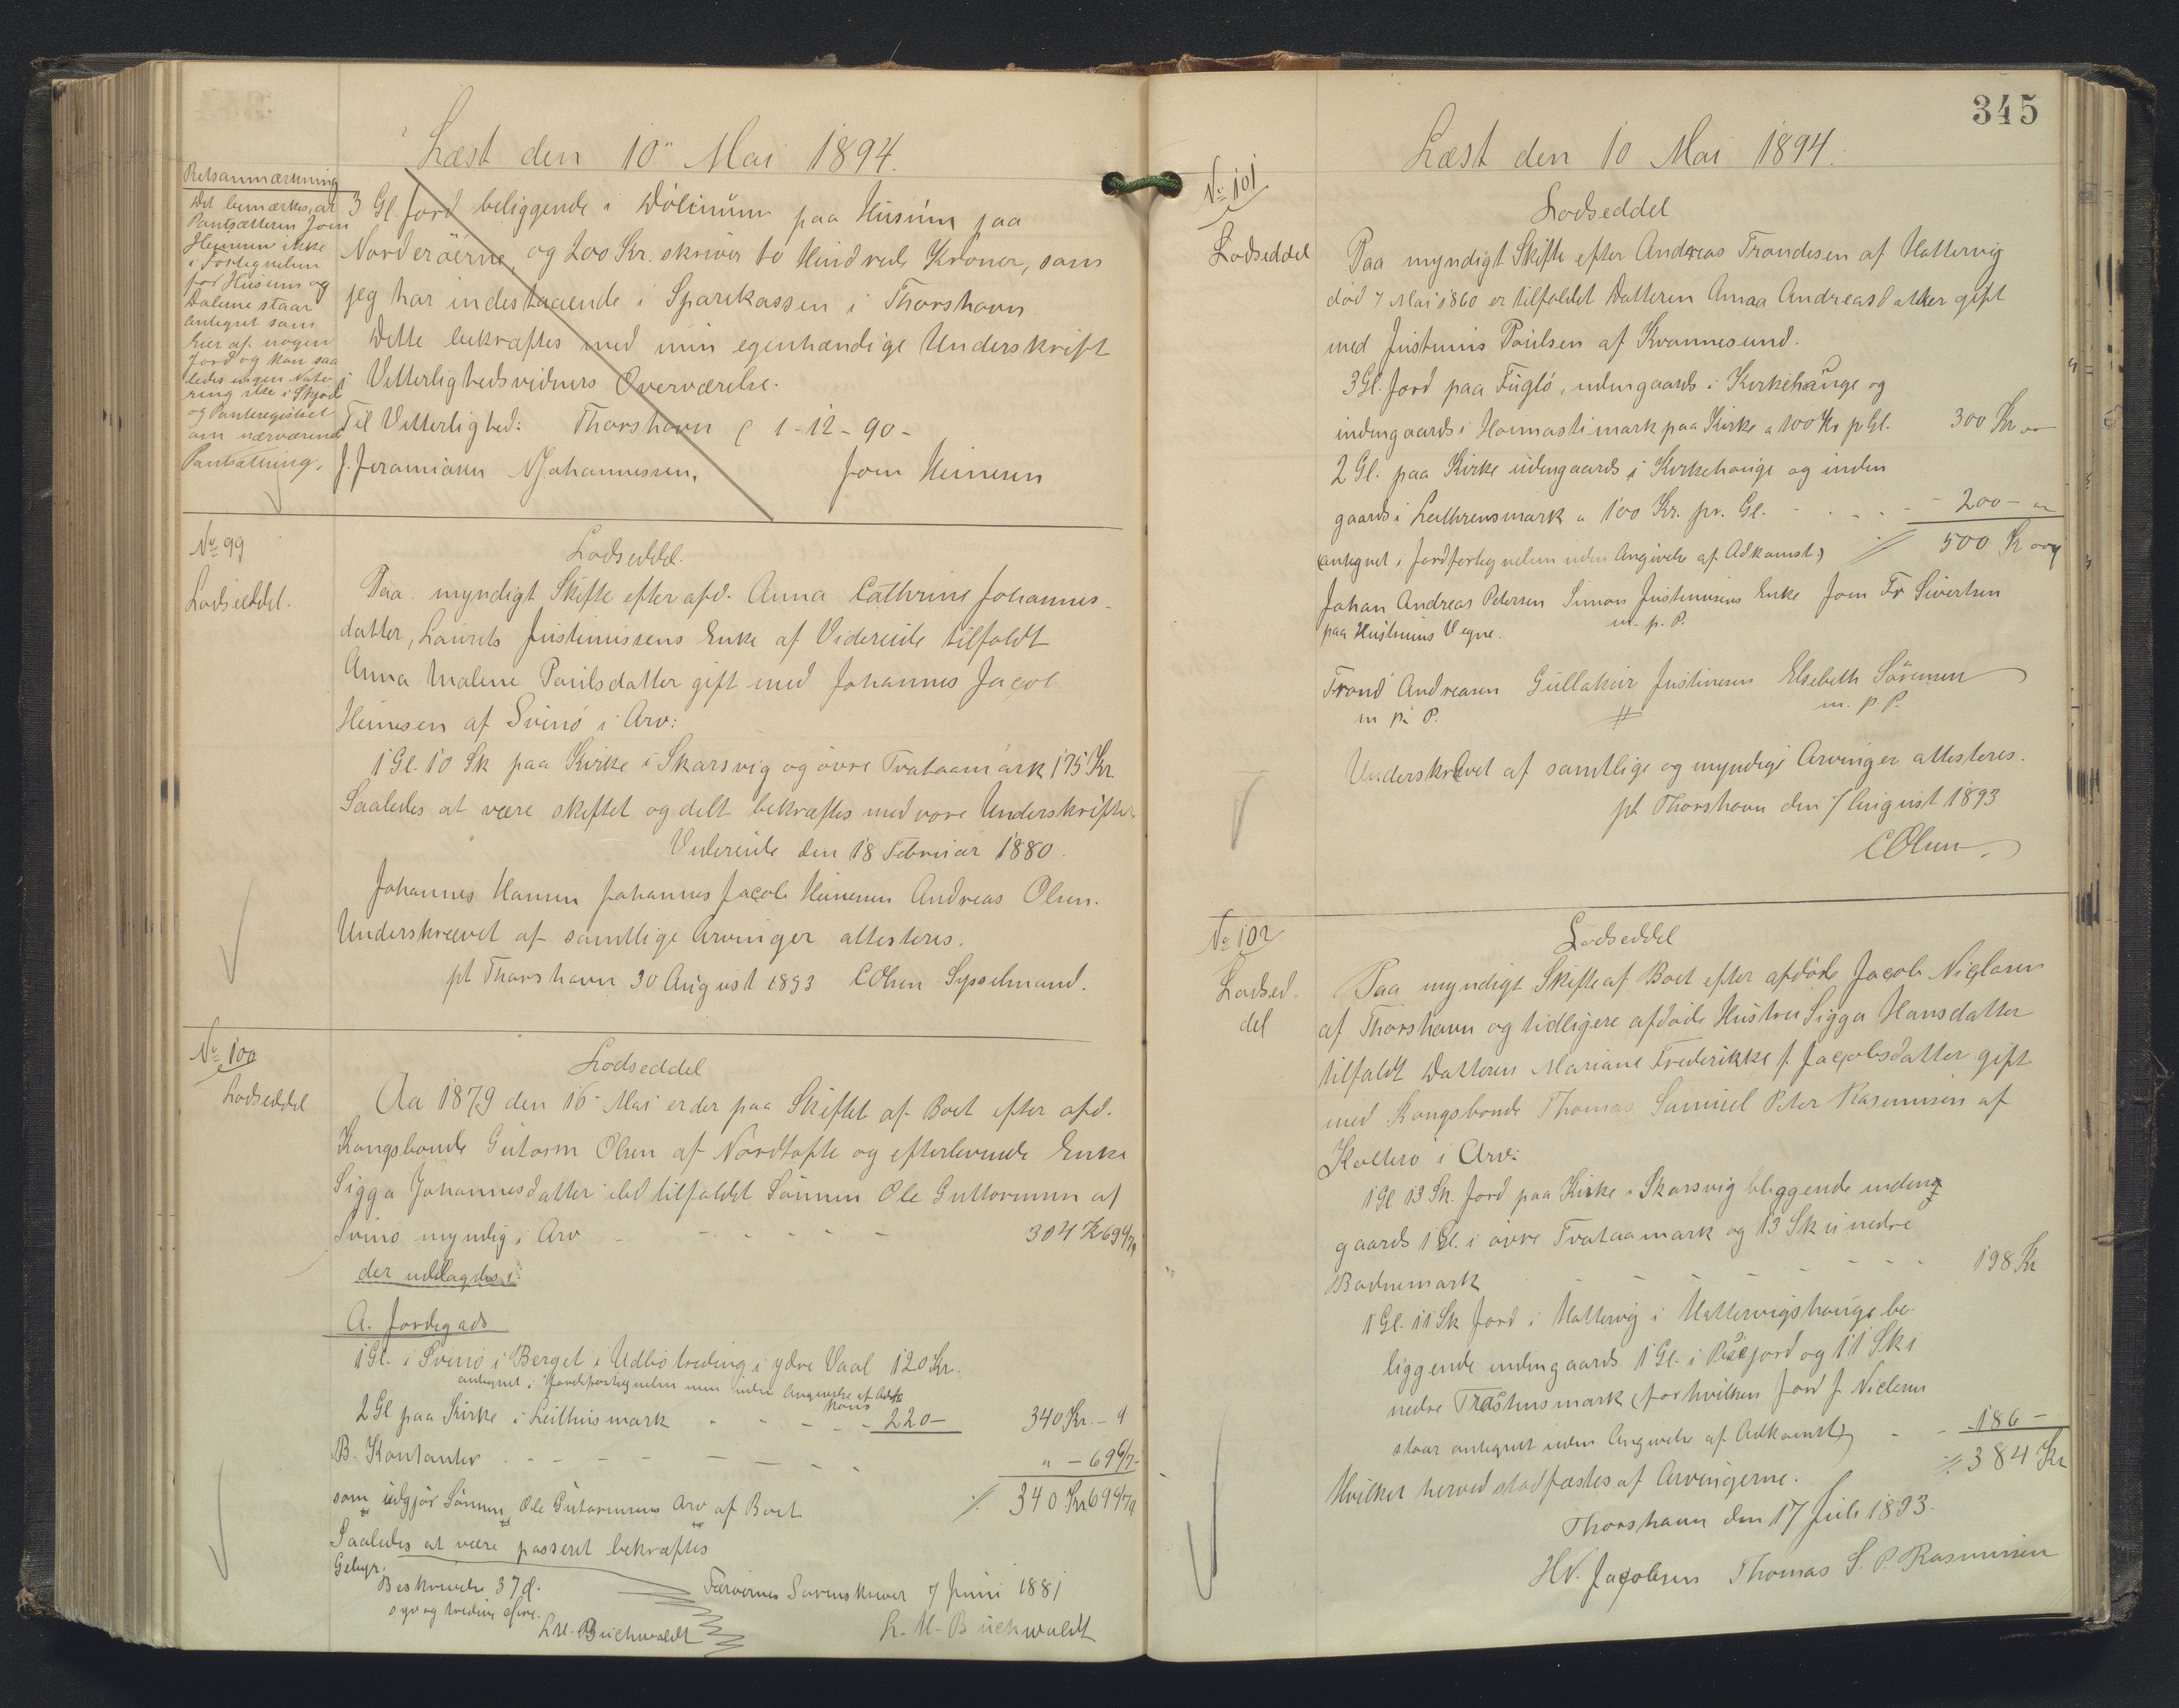 Læst den 10" Mai 1894.
Retsanmærkning
Det bemærkes, at
Pantsætteren Joen
Heinesen ikke
i Fortegnelsen
for Husum og
Dalene staar
antegnet som
Eier af nogen
Jord og kan saa
ledes ingen Note
ring ske i Skjøde
og Panteregistret
om nærværende
Pantsætning.
3 Gl. Jord beliggende i Dølinum paa Husum paa
Norderøerne, og 200 Kr. skriver to Hundrede Kroner, som
jeg har indestaaende i Sparekassen i Thorshavn
Dette bekræftes med min egenhændige Underskrift
i Vitterlighedsvidners Overværelse.
Til Vitterlighed: Thorshavn 1-12-90-
J. Jeramiasen NJohannessen. Joen Heinesen
No 99
Lodseddel.
Lodseddel.
Paa myndigt Skifte efter afd. Anna Cathrine Johannes-
datter, Laurits Justinussens Enke af Videreide tilfaldt
Anna Malene Poulsdatter gift med Johannes Jacob
Heinesen af Svinø i Arv:
1 Gl. 10 Sk paa Kirke i Skarsvig og øvre Tvataamark 175 Kr
Saaledes at være skiftet og delt bekræftes med vore Underskrifter
Videreide den 18 Februar 1880.
Johannes Hansen Johannes Jacob Heinesen Andreas Olsen.
Underskrevet af samtlige Arvinger attesteres.
pt Thorshavn 30 August 1893 COlsen Sysselmand.
No 100
Lodseddel
Lodseddel
Aa 1879 den 16 Mai er der paa Skiftet af Boet efter afd.
Kongsbonde Gutorm Olsen af Nordtofte og efterlevende Enke
Sigga Johannesdatter ibd tilfaldt Sønnen Ole Guttormsen af
Svinø myndig i Arv 304 Kr 69 4/7 q
der udlagdes i
A. Jordegods
1 Gl. i Svinø i Berget i Udbø treding i ydre Vaal 120 Kr.
antegnet i Jordfortegnelsen men uden Angivelse af Adkomst
2 Gl paa Kirke i Leithrismark 220 - 340 Kr. - q
B. Kontanter " - 69 6/7 -
som udgjør Sønnen Ole Gutormsens Arv af Boet ·/. 340 Kr 69 4/7 q
Saaledes at være passeret bekræftes
Gebyr.
Beskrivelse 37 q. Færøernes Sorenskriver 7 Juni 1881
syv og tredive øre.
L.M. Buchwaldt L. M. Buchwaldt
345
Læst den 10 Mai 1894.
No 101
Lodseddel
Lodseddel
Paa myndigt Skifte efter Andreas Trondesen af Hattervig
død 7 Mai 1860 er tilfaldet Datteren Anna Andreasdatter gift
med Justinus Poulsen af Kvannesund.
3 Gl. Jord paa Fuglø, udengaards i Kirkehauge og
indengaards i Hannastimark paa Kirke a 100 Kr p Gl. 300 Kr "
2 Gl. paa Kirke udengaards i Kirkehauge og inden
gaards i Leithrensmark a 100 Kr. pr. Gl. - 200 - "
(antegnet i Jordfortegnelsen uden Angivelse af Adkomst) ·/. 500 Kr " q
Johan Andreas Petersen Simon Justinusens Enke Joen Fr Sivertsen
paa Hustruens Vegne. m. p. P.
Trond Andreasen Gullakur Justinesen Elsebeth Sørensen
m p. P. # m. p P.
Underskrevet af samtlige og myndige Arvinger attesteres.
pt Thorshavn den 7 August 1893
COlsen.
No 102
Lodsed.
del
Lodseddel
Paa myndigt Skifte af Boet efter afdøde Jacob Niclasen
af Thorshavn og tidligere afdøde Hustru Sigga Hansdatter
tilfaldt Datteren Mariane Frederikke f. Jacobsdatter gift
med Kongsbonde Thomas Samuel Peter Rasmussen af
Kolterø i Arv:
1 Gl 13 Sk. Jord paa Kirke i Skarsvig bliggende inden
gaards 1 Gl. i øvre Tvataamark og 13 Sk i nedre
Badnemark 198 Kr
1 Gl. 11 Sk Jord i Hattervig i Hattervigshauge be-
liggende indengaards 1 Gl. i jord og 11 Sk i
nedre Trästinsmark (for hvilken Jord J. Niclasen
staar antegnet uden Angivelse af Adkomst) - 186 -
Hvilket herved stadfæstes af Arvingerne. ·/. 384 Kr
Thorshavn den 17 Juli 1893.
HN. Jacobsen Thomas S. P. Rasmussen